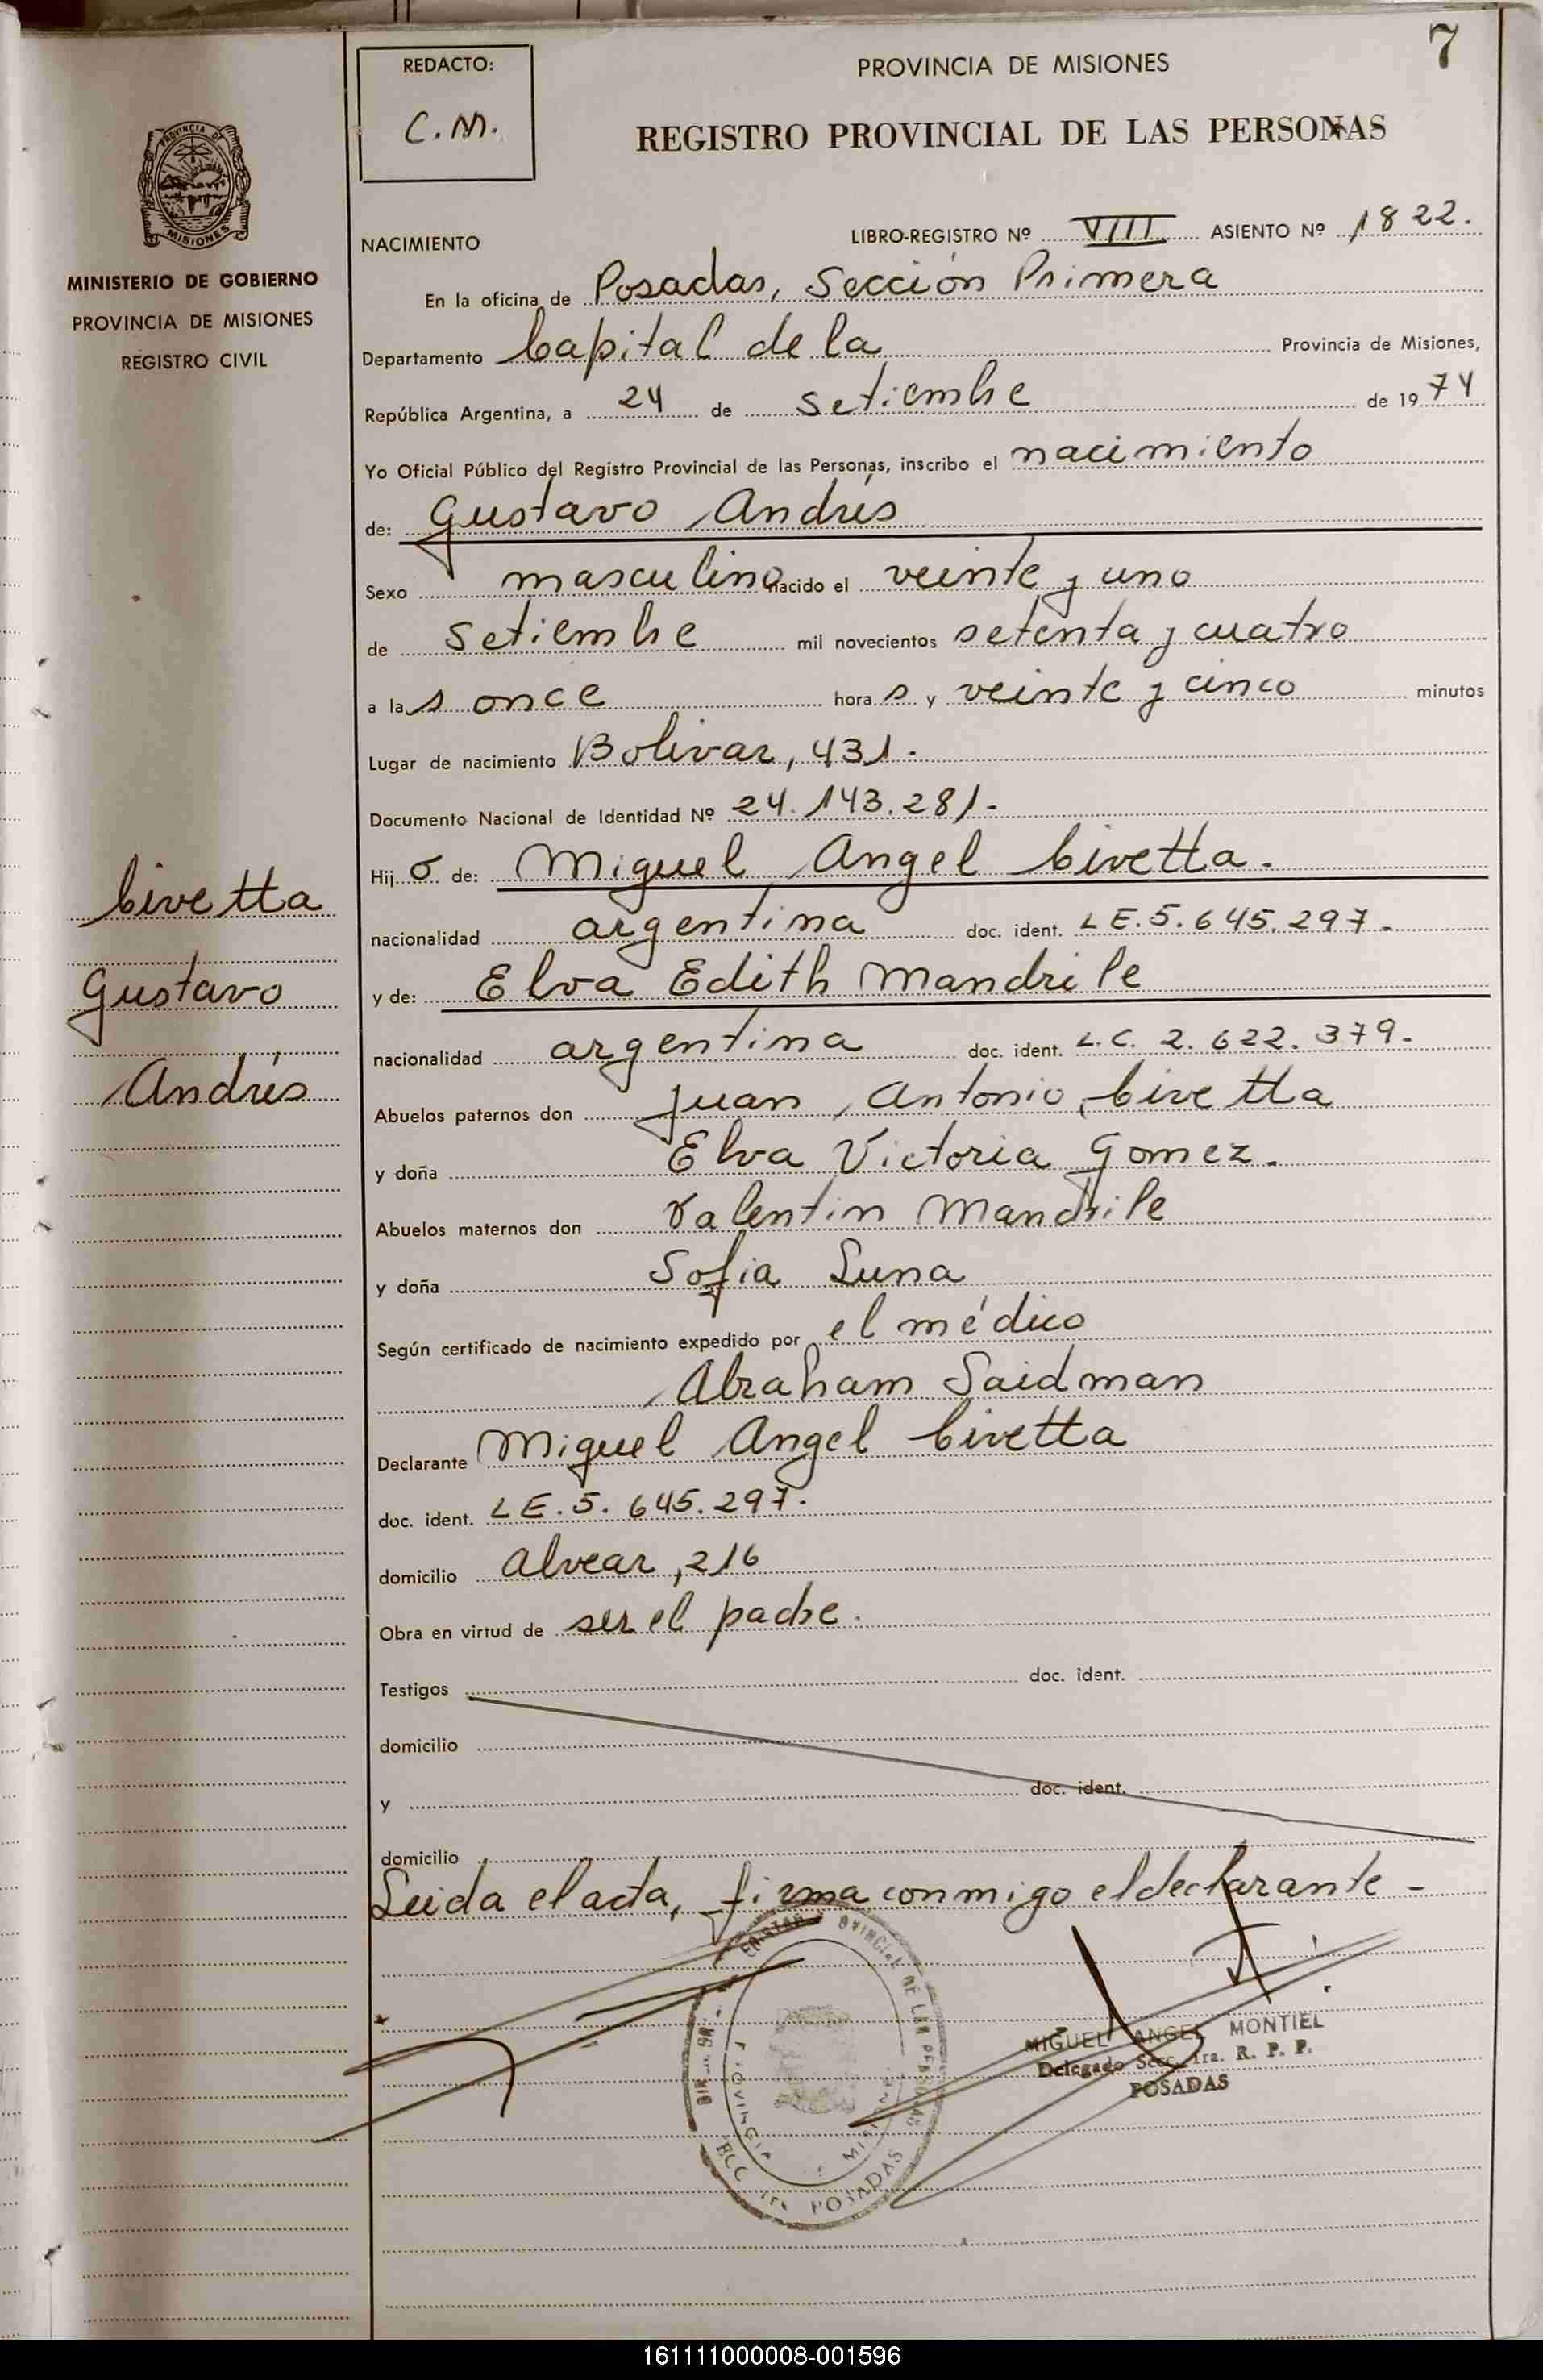 7
REDACTO:
C.M.
PROVINCIA DE MISIONES
REGISTRO PROVINCIAL DE LAS PERSONAS
PROVINCIA DE
MISIONES
MINISTERIO DE GOBIERNO
PROVINCIA DE MISIONES
REGISTRO CIVIL
NACIMIENTO
LIBRO-REGISTRO Nº VIII ASIENTO Nº 1822.
En la oficina de Posadas, Sección Primera
Departamento Capital de la Provincia de Misiones,
República Argentina, a 24 de setiembre de 1974
Yo Oficial Público del Registro Provincial de las Personas, inscribo el nacimiento
de: Gustavo Andrés
Sexo masculino nacido el veinte y uno
de setiembre mil novecientos setenta y cuatro
a las once horas y veinte y cinco minutos
Lugar de nacimiento Bolivar, 431.
Documento Nacional de Identidad Nº 24.143.281.-
Hijo de: Miguel Angel Civetta.
nacionalidad argentina doc. ident. LE.5.645.297.-
y de: Elva Edith Mandrile
nacionalidad argentina doc. ident. L.C. 2.622.379.-
Abuelos paternos don Juan Antonio Civetta
y doña Elva Victoria Gomez.
Abuelos maternos don Valentin Mandrile
y doña Sofia Luna
Según certificado de nacimiento expedido por el médico
Abraham Saidman
Declarante Miguel Angel Civetta
doc. ident. LE.5.645.297.
domicilio Alvear, 216
Obra en virtud de ser el padre.
Testigos doc. ident.
domicilio
y doc. ident.
domicilio
Leida el acta, firma conmigo el declarante -
Civetta
Gustavo
Andrés
MIGUEL ANGEL MONTIEL
Delegado Secc. 1ra. R. P. P.
POSADAS
161111000008-001596